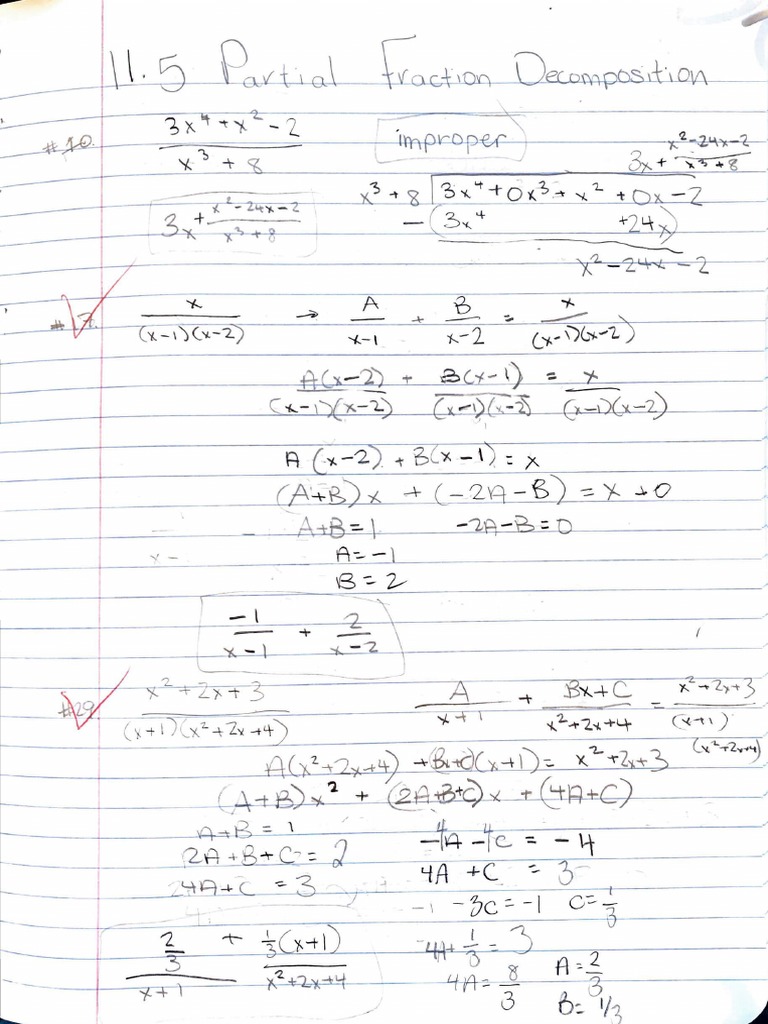 11.5 Partial Fraction Decomposition
#10. (3x⁴+x²-2)/(x³+8) improper 3x+(x²-24x-2)/(x³+8)
x³+8 | 3x⁴+0x³+x²+0x-2
3x+(x²-24x-2)/(x³+8) -(3x⁴ +24x)
x²-24x-2
#17. x/((x-1)(x-2)) → A/(x-1) + B/(x-2) = x/((x-1)(x-2))
A(x-2)/((x-1)(x-2)) + B(x-1)/((x-1)(x-2)) = x/((x-1)(x-2))
A(x-2)+B(x-1)=x
(A+B)x + (-2A-B) = x+0
A+B=1 -2A-B=0
x- A=-1
B=2
-1/(x-1) + 2/(x-2)
#29. (x²+2x+3)/((x+1)(x²+2x+4)) A/(x+1) + (Bx+C)/(x²+2x+4) = (x²+2x+3)/((x+1)(x²+2x+4))
A(x²+2x+4)+(Bx+C)(x+1)= x²+2x+3
(A+B)x² + (2A+B+C)x + (4A+C)
A+B=1 -4A-4C=-4
2A+B+C=2 4A+C=3
4A+C=3 -3C=-1 C=1/3
(2/3)/(x+1) + (1/3(x+1))/(x²+2x+4) 4A+1/3=3
4A=8/3 A=2/3
B=1/3